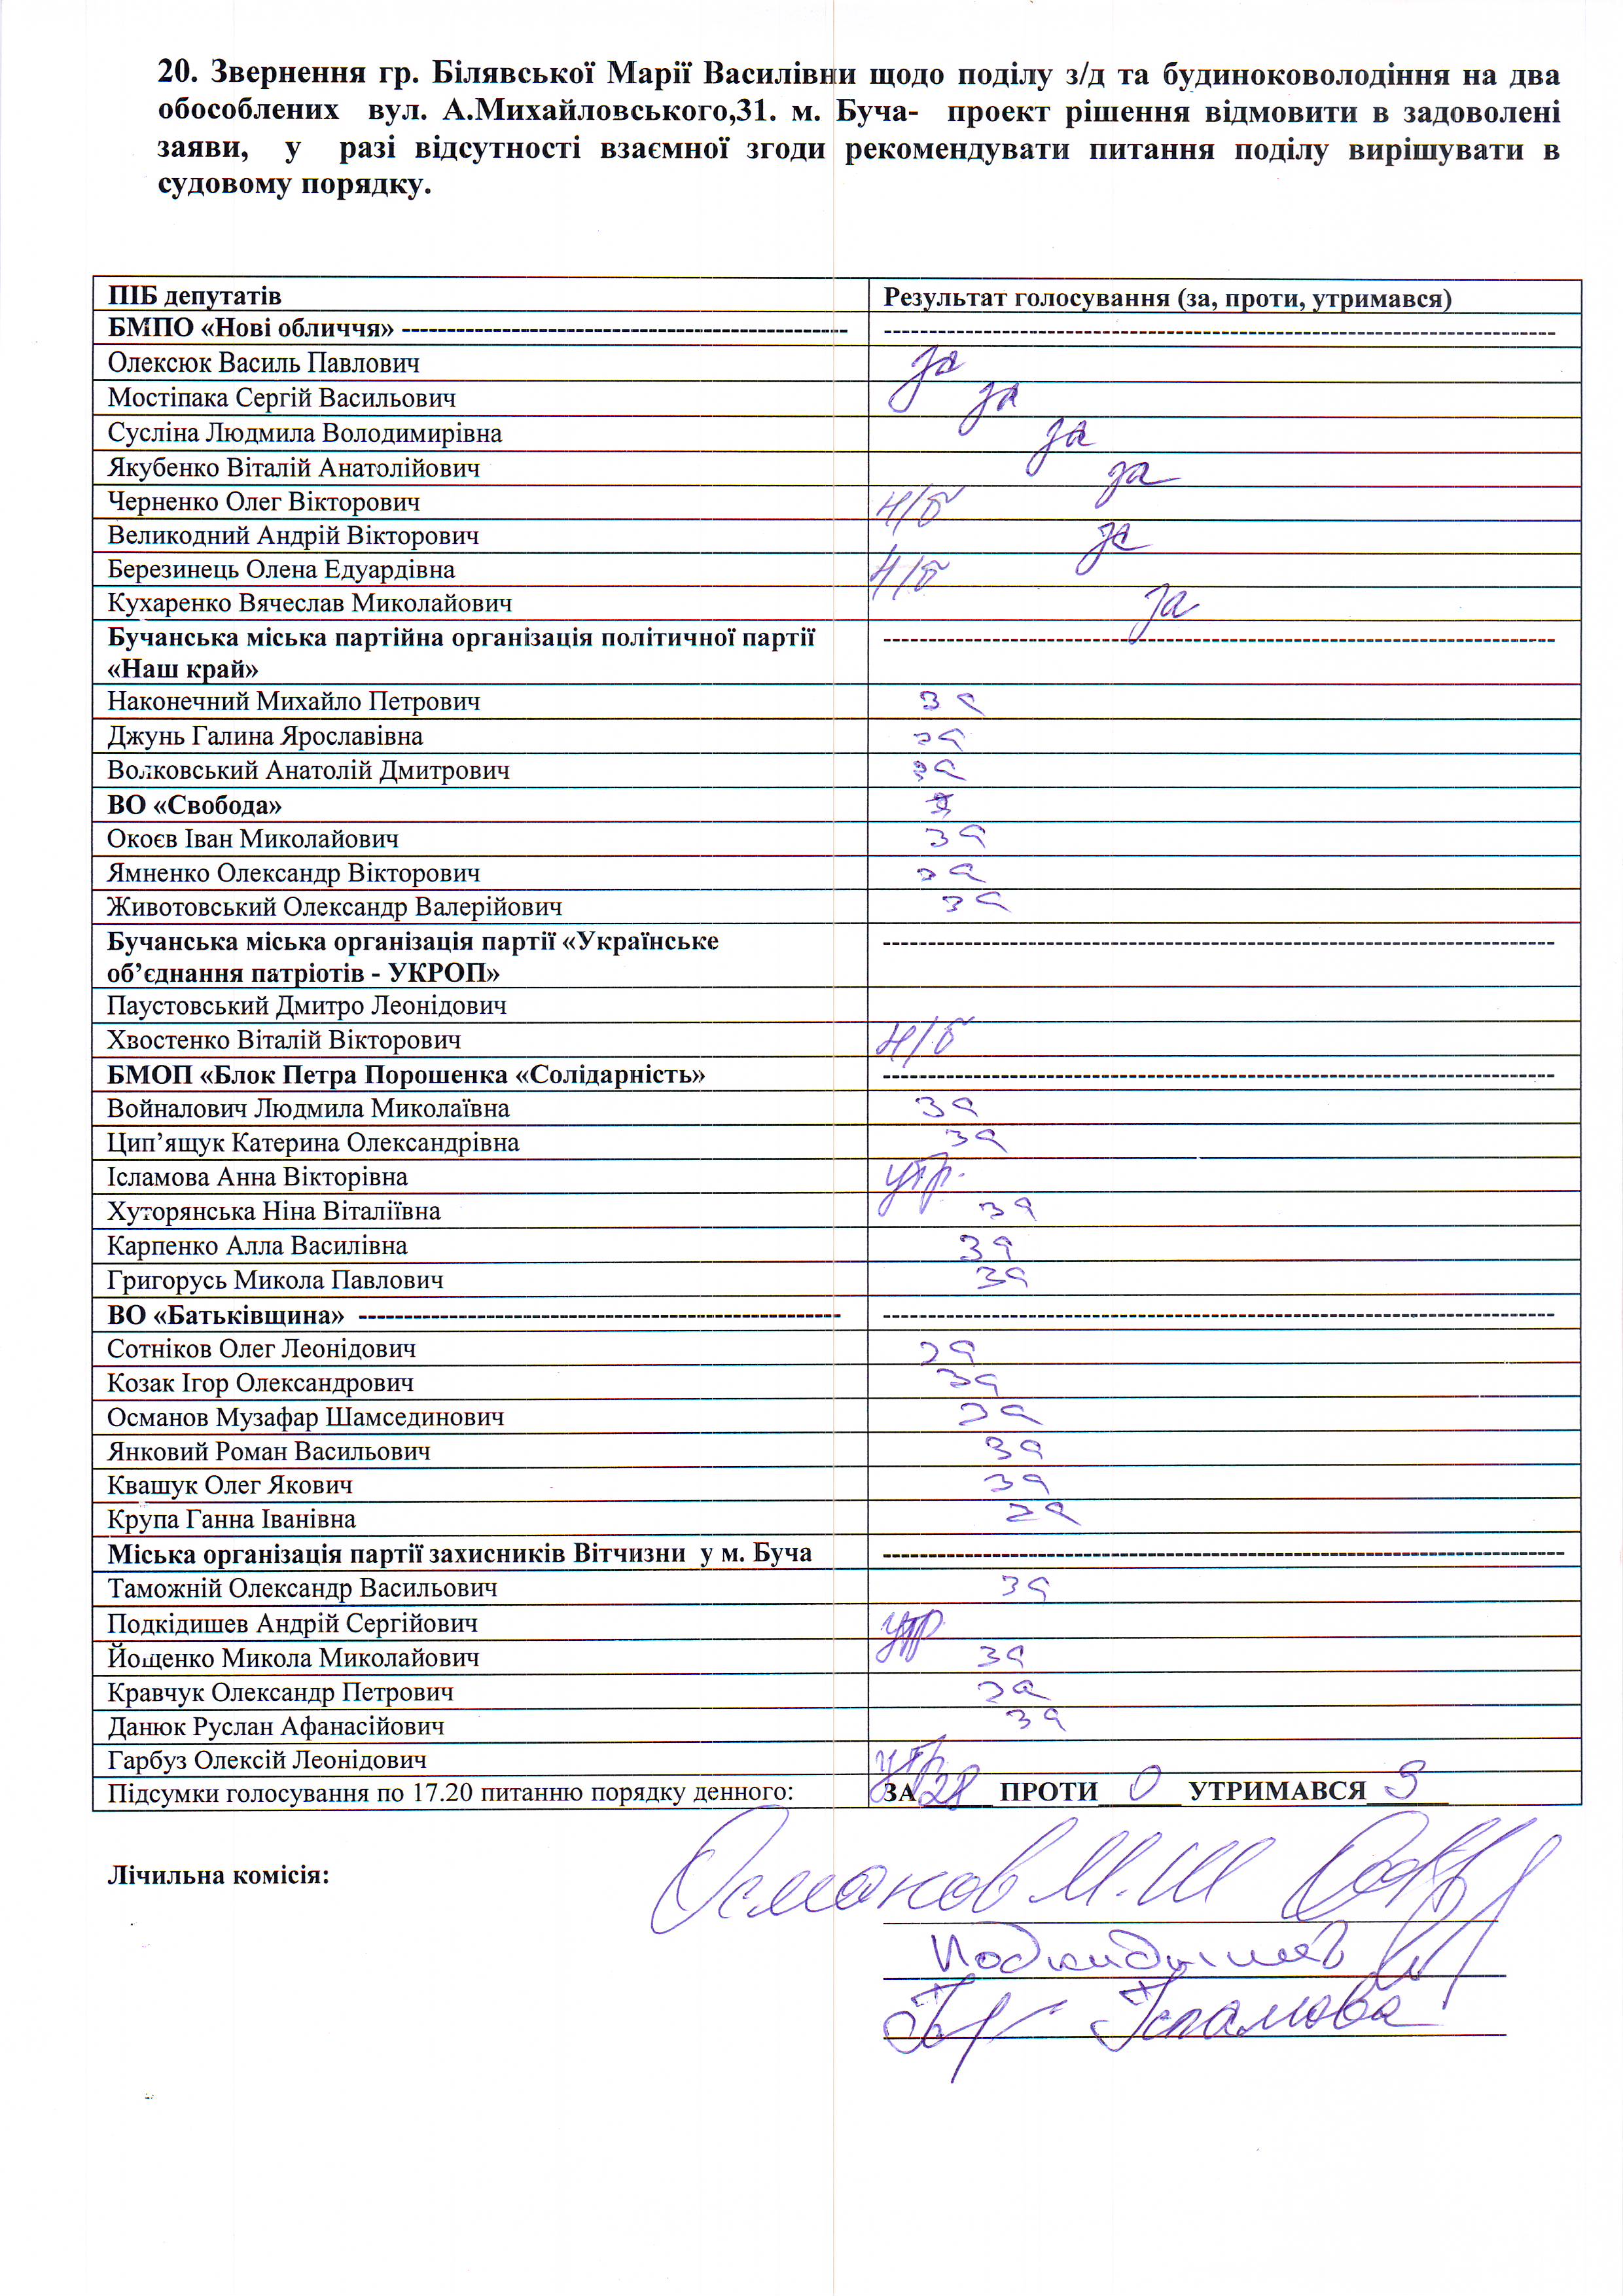 20. Звернення гр. Білявської Марії Василівни щодо поділу з/д та будинковолодіння на два
обособлених вул. А.Михайловського,31. м. Буча- проект рішення відмовити в задоволені
заяви, у разі відсутності взаємної згоди рекомендувати питання поділу вирішувати в
судовому порядку.
ПІБ депутатів Результат голосування (за, проти, утримався)
БМПО «Нові обличчя»
Олексюк Василь Павлович за
Мостіпака Сергій Васильович за
Сусліна Людмила Володимирівна за
Якубенко Віталій Анатолійович за
Черненко Олег Вікторович н/б
Великодний Андрій Вікторович за
Березинець Олена Едуардівна н/б
Кухаренко Вячеслав Миколайович за
Бучанська міська партійна організація політичної партії
«Наш край»
Наконечний Михайло Петрович за
Джунь Галина Ярославівна за
Волковський Анатолій Дмитрович за
ВО «Свобода»
Окоєв Іван Миколайович за
Ямненко Олександр Вікторович за
Животовський Олександр Валерійович за
Бучанська міська організація партії «Українське
об’єднання патріотів - УКРОП»
Паустовський Дмитро Леонідович
Хвостенко Віталій Вікторович н/б
БМОП «Блок Петра Порошенка «Солідарність»
Войналович Людмила Миколаївна за
Цип’ящук Катерина Олександрівна за
Ісламова Анна Вікторівна утр.
Хуторянська Ніна Віталіївна за
Карпенко Алла Василівна за
Григорусь Микола Павлович за
ВО «Батьківщина»
Сотніков Олег Леонідович за
Козак Ігор Олександрович за
Османов Музафар Шамсединович за
Янковий Роман Васильович за
Квашук Олег Якович за
Крупа Ганна Іванівна за
Міська організація партії захисників Вітчизни у м. Буча
Таможній Олександр Васильович за
Подкідишев Андрій Сергійович утр
Йощенко Микола Миколайович за
Кравчук Олександр Петрович за
Данюк Руслан Афанасійович за
Гарбуз Олексій Леонідович утр
Підсумки голосування по 17.20 питанню порядку денного: ЗА 28 ПРОТИ 0 УТРИМАВСЯ
Лічильна комісія: Османов М.Ш
Ісламова